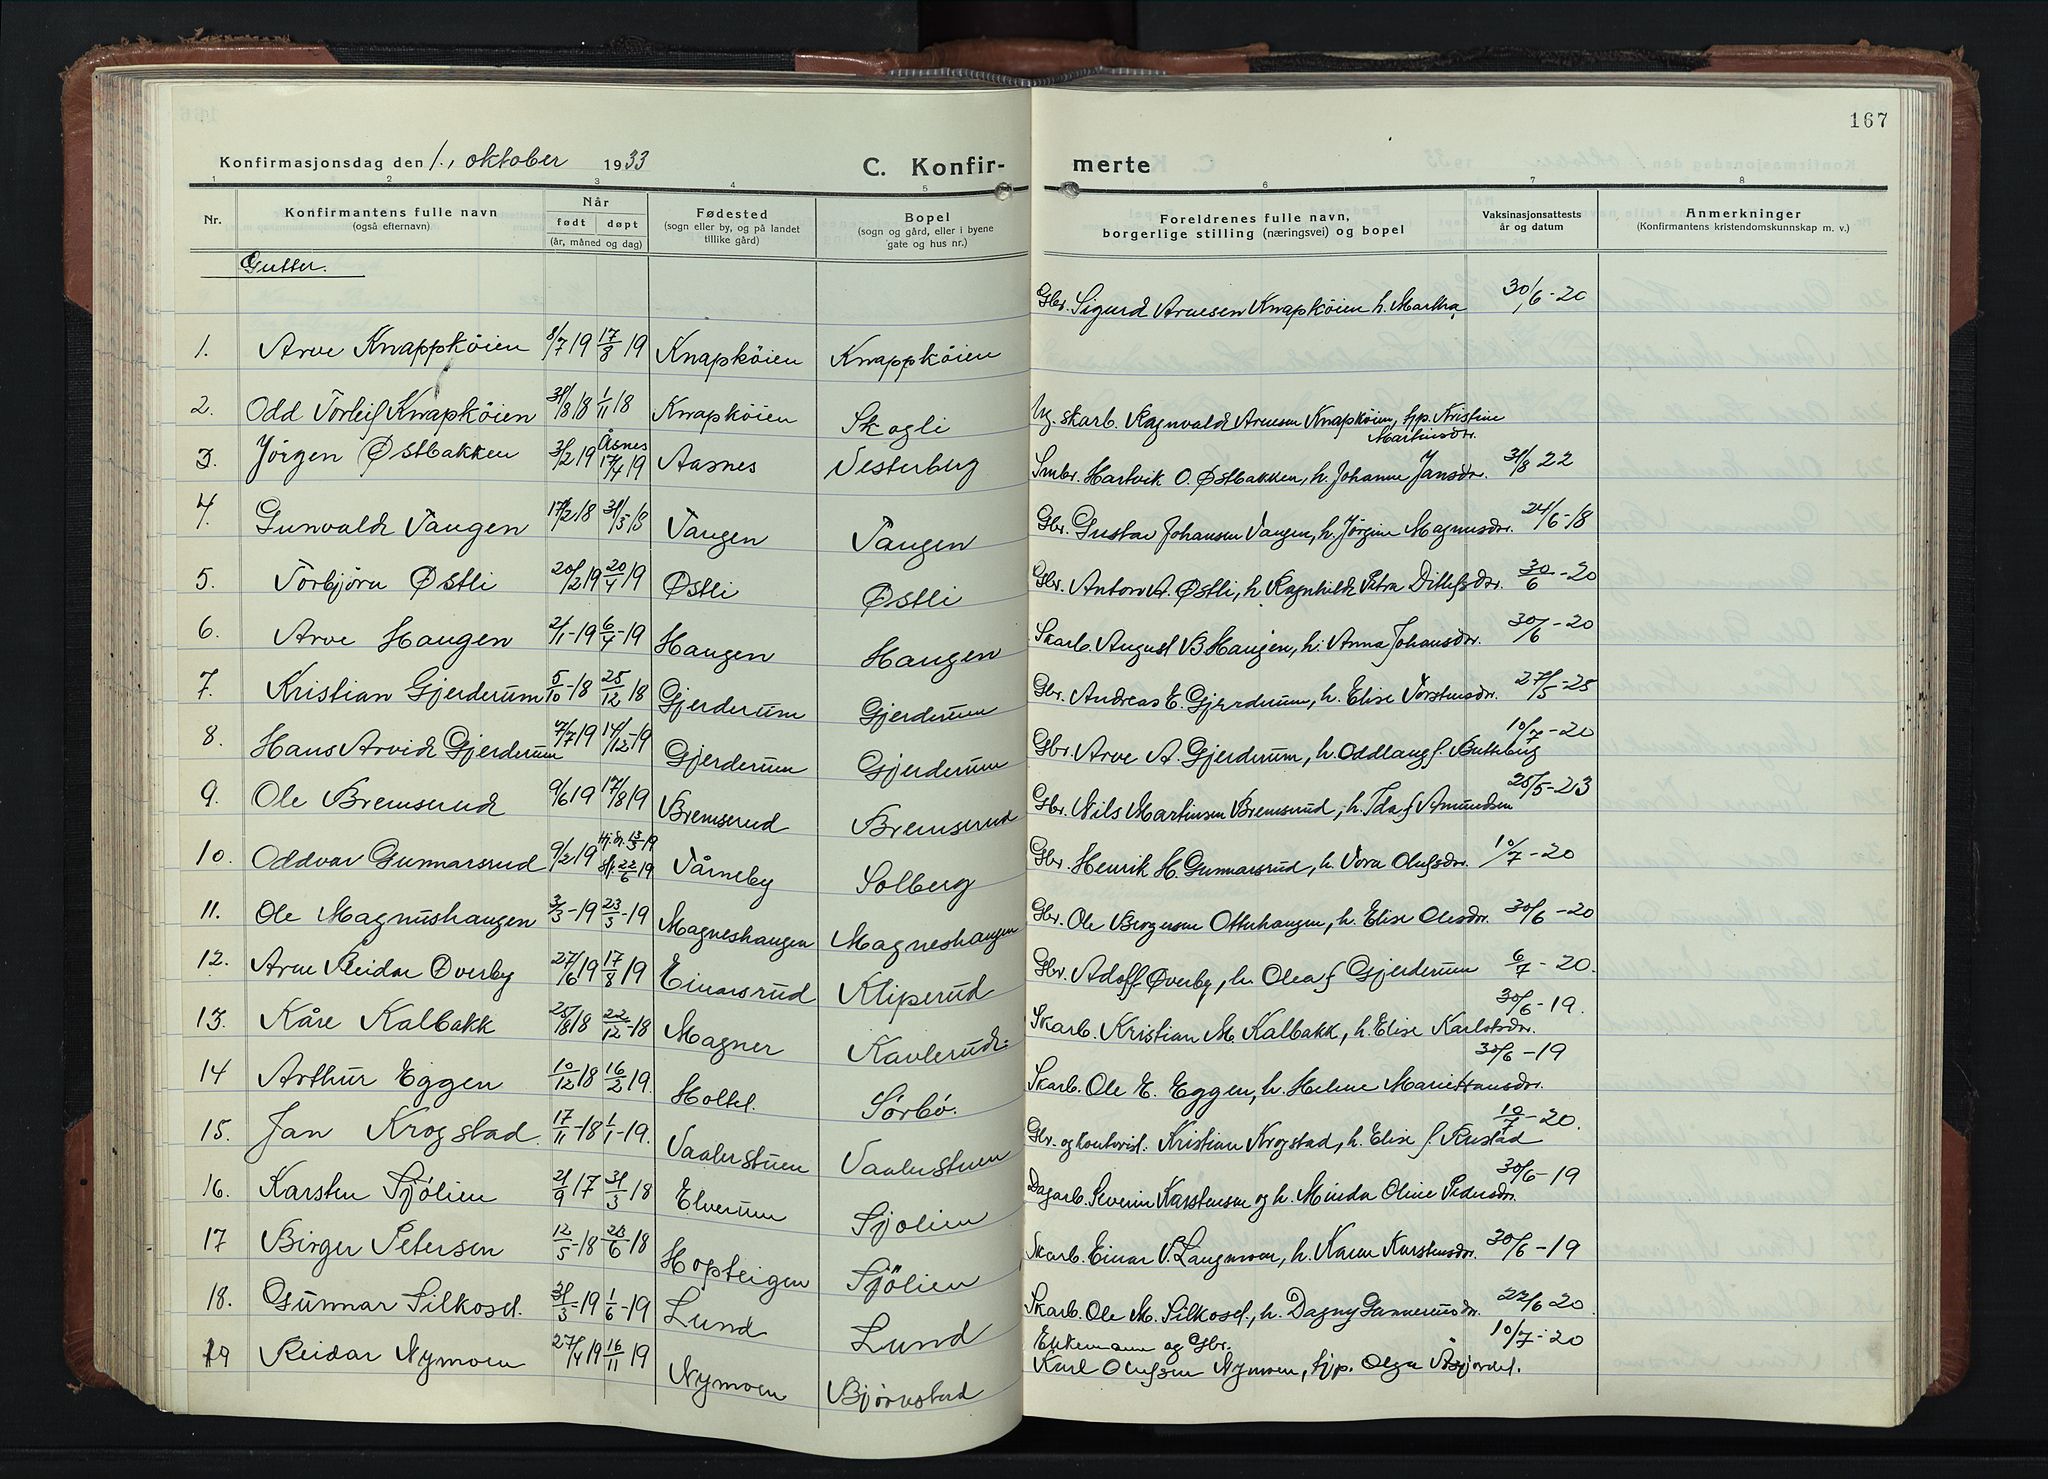 167
Konfirmasjonsdag den 1., oktober 1933 C. Konfir- merte
1 2 3 4 5 6 7 8
Nr. Konfirmantens fulle navn (også efternavn) Når født døpt (år, måned og dag) Fødested (sogn eller by, og på landet tillike gård) Bopel (sogn og gård, eller i byene gate og hus nr.) Foreldrenes fulle navn, borgerlige stilling (næringsvei) og bopel Vaksinasjonsattests år og datum Anmerkninger (Konfirmantens kristendomskunnskap m. v.)
Gutter.
1. Arve Knappkøien 8/7 19 17/8 19 Knapkøien Knappkøien Gbr. Sigurd Arnesen Knapkøien h. Martha 30/6-20
2. Odd Torleif Knapkøien 31/8 18 1/11 18 Knapkøien Skogli Ug. skarb. Ragnvald Arnesen Knapkøien, frp. Kristine Martinsdr.
3. Jørgen Østbakken 3/2 19 Åsnes 17/4 19 Aasnes Vesterberg Smbr. Hartvik O. Østbakken, h. Johanne Jansdr. 31/8 22
4. Gunvald Tangen 17/2 18 31/3 18 Tangen Tangen Gbr. Gustav Johansen Tangen, h. Jørgine Magnusdr. 24/6-18
5. Torbjørn Østli 20/2 19 20/4 19 Østli Østli Gbr. Anton A. Østli, h. Ragnhild Petra Ditlefsdr. 30/6-20
6. Arve Haugen 2/1-19 6/4-19 Haugen Haugen Skarb. August B Haugen, h. Anna Johansdr. 30/6-20
7. Kristian Gjerderum 5/10-18 25/12 18 Gjerderum Gjerderum Gbr. Andreas E. Gjerderum, h. Elise Torstensdr. 27/5-25
8. Hans Arvid Gjerderum 7/7 19 14/12-19 Gjerderum Gjerderum Gbr. Arve A. Gjerderum, h. Oddlaug f. Butteberg 10/7-20
9. Ole Bremsrud 9/6 19 17/8 19 Bremserud Bremserud Gbr. Nils Martinsen Bremsrud, h. Ida f Amundsen 25/5-23
10. Oddvar Gunnarsrud 9/2 19 Hj.d. 13/3-19 st.f. 22/6 19 Tårneby Solberg Gbr. Henrik H. Gunnarsrud, h. Tora Olufsdr. 10/7-20
11. Ole Magnushaugen 3/3-19 23/3-19 Magneshaugen Magneshaugen Gbr. Ole Bergersen Otterhaugen, h. Elise Olesdr. 30/6-20
12. Arne Reidar Øverby 27/6 19 17/8 19 Einarsrud Kliperud Gbr. Adolf Øverby, h. Olea f Gjerderum 6/7-20.
13. Kåre Kalbakk 25/8 18 22/12-18 Magner Kavlerud: Skarb. Kristian M. Kalbakk, h. Elise Karlotsdr. 30/6-19.
14 Arthur Eggen 10/12 18 16/2 19. Holtet. Sørbø. Skarb. Ole E. Eggen, h. Helene Marie Hansdr. 30/6-19
15. Jan Krogstad. 17/11-18 1/1-19. Vaalerstuen Vaalerstuen Gbr. og kontorist. Kristian Krogstad, h. Elise f. Rustad 10/7-20.
16. Karsten Sjølien 21/9 17 31/3 18 Elverum Sjølien Dagarb. Severin Karstensen og h. Minda Oline Pedersdr. 30/6-19
17 Birger Petersen 12/5-18 23/6 18 Hopteigen Sjølien Skarb. Einar P. Langmoen, h. Karen Karstensdr. 30/6-19
18. Gunnar Silkoset. 31/3-19 1/6-19 Lund Lund Skarb. Ole M. Silkoset, h. Dagny Gunnerusdr. 22/6 20.
19 Reidar Nymoen 27/4 19 16/11 19 Nymoen Bjørnstad Enkemann og Gbr. Karl Olufsen Nymoen, frp. Olga Asjordet. 10/7-20